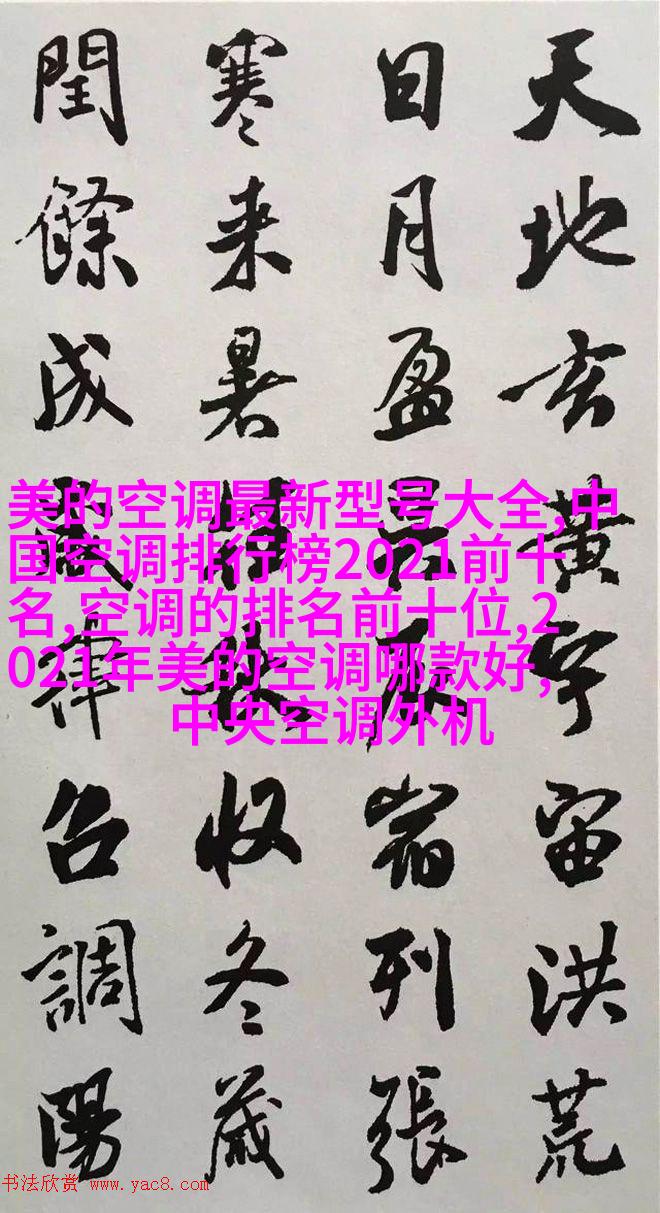 天地玄黃宇宙洪荒
日月盈昃辰宿列張
寒来暑往秋收冬藏
閏餘成歲律召調陽
美的空调最新型号大全,中
国空调排行榜2021前十
名,空调的排名前十位,2
021年美的空调哪款好,
中央空调外机
书法欣赏 www.yac8.com